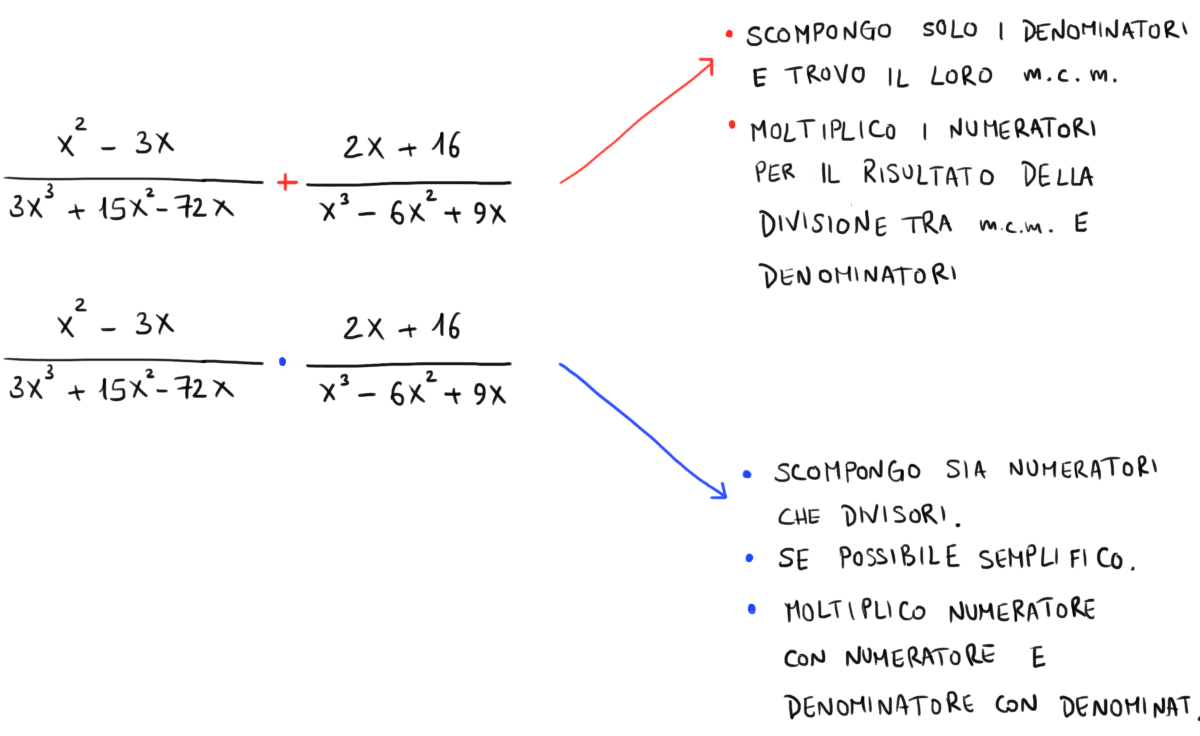 • SCOMPONGO SOLO I DENOMINATORI
E TROVO IL LORO m.c.m.
• MOLTIPLICO I NUMERATORI
PER IL RISULTATO DELLA
DIVISIONE TRA m.c.m. E
DENOMINATORI
x² - 3x / 3x³ + 15x² - 72x + 2x + 16 / x³ - 6x² + 9x
x² - 3x / 3x³ + 15x² - 72x · 2x + 16 / x³ - 6x² + 9x
• SCOMPONGO SIA NUMERATORI
CHE DIVISORI.
• SE POSSIBILE SEMPLIFICO.
• MOLTIPLICO NUMERATORE
CON NUMERATORE E
DENOMINATORE CON DENOMINAT.